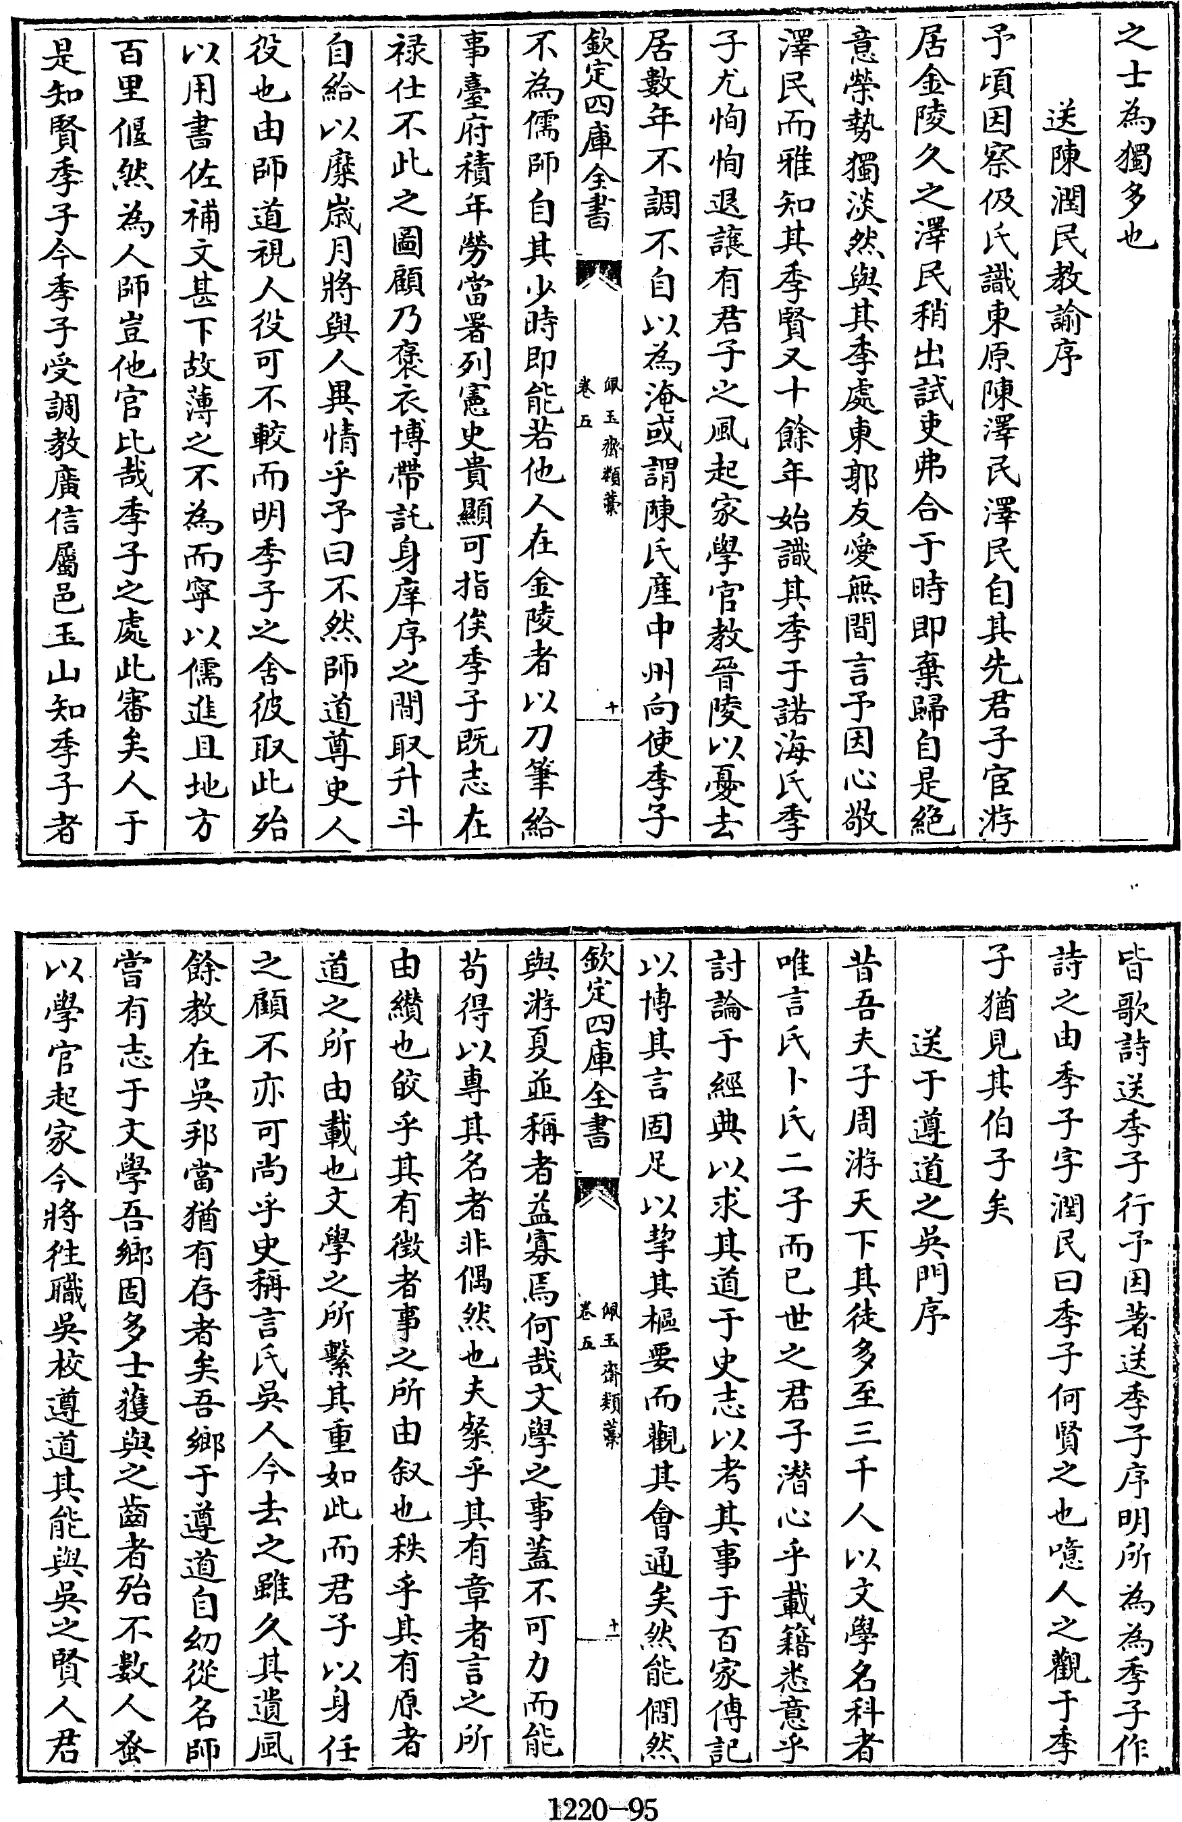 之士為獨多也
送陳潤民教諭序
予頃因察伋氏識東原陳澤民澤民自其先君子宦游
居金陵久之澤民稍出試吏弗合于時即棄歸自是絕
意榮勢獨淡然與其季處東郭友愛無間言予因心敬
澤民而雅知其季賢又十餘年始識其季于諾海氏季
子尤恂恂退讓有君子之風起家學官教晉陵以憂去
居數年不調不自以為淹或謂陳氏產中州向使季子
欽定四庫全書
佩玉齋類藁
卷五
十
不為儒師自其少時即能若他人在金陵者以刀筆給
事臺府積年勞當署列憲史貴顯可指俟季子既志在
祿仕不此之圖顧乃褒衣博帶託身庠序之間取升斗
自給以糜歲月將與人異情乎予曰不然師道尊吏人
役也由師道視人役可不較而明季子之舍彼取此殆
以用書佐補文甚下故薄之不為而寧以儒進且地方
百里偃然為人師豈他官比哉季子之處此審矣人于
是知賢季子今季子受調教廣信屬邑玉山知季子者
皆歌詩送季子行予因著送季子序明所為為季子作
詩之由季子字潤民曰季子何賢之也噫人之觀于季
子猶見其伯子矣
送于遵道之吳門序
昔吾夫子周游天下其徒多至三千人以文學名科者
唯言氏卜氏二子而已世之君子潛心乎載籍悉意乎
討論于經典以求其道于史志以考其事于百家傳記
以博其言固足以挈其樞要而觀其會通矣然能僩然
欽定四庫全書
佩玉齋類藁
卷五
十一
與游夏並稱者益寡焉何哉文學之事蓋不可力而能
苟得以專其名者非偶然也夫粲乎其有章者言之所
由纘也皎乎其有徵者事之所由叙也秩乎其有原者
道之所由載也文學之所繫其重如此而君子以身任
之顧不亦可尚乎史稱言氏吳人今去之雖久其遺風
餘教在吳邦當猶有存者矣吾鄉于遵道自幼從名師
當有志于文學吾鄉固多士獲與之齒者殆不數人蚤
以學官起家今將往職吳校遵道其能與吳之賢人君
1220-95